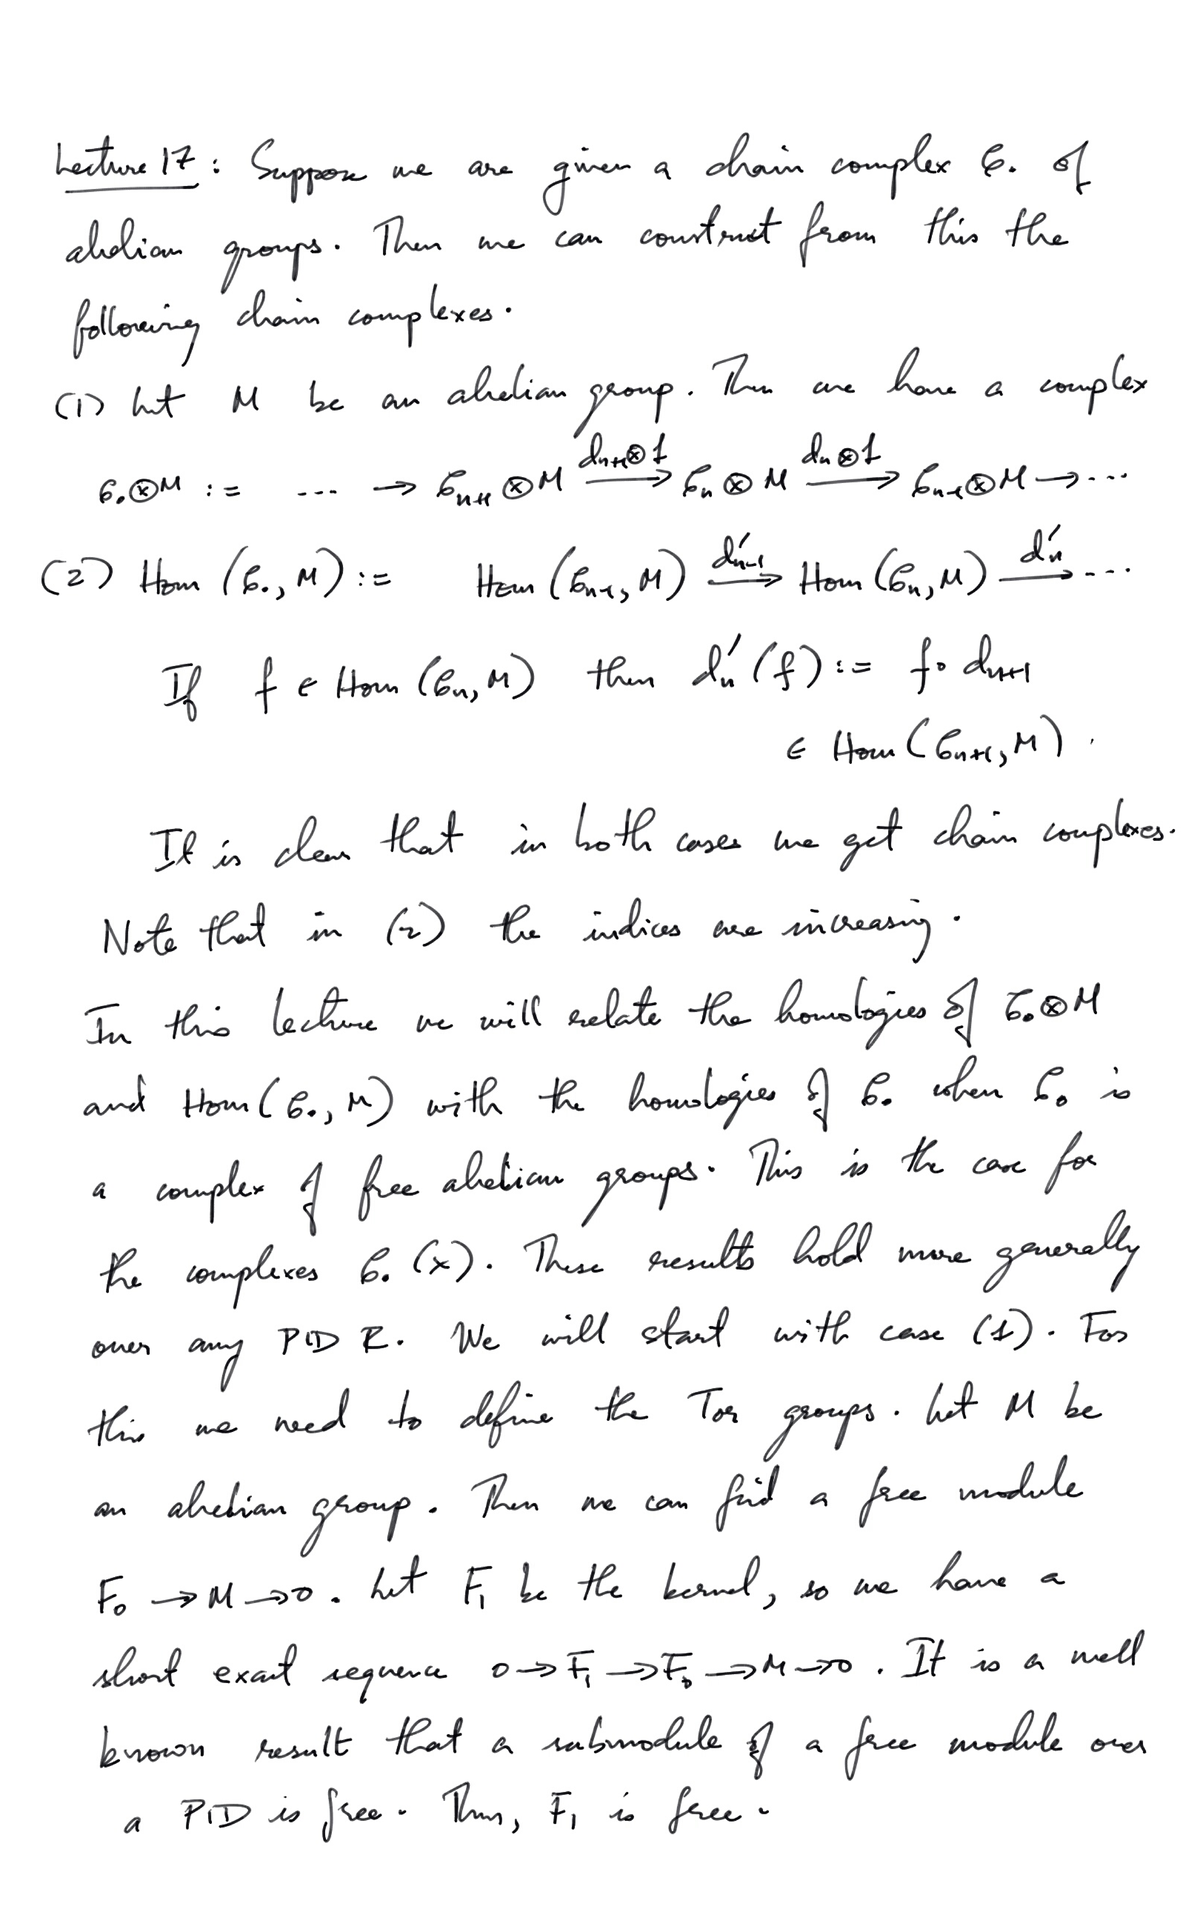 Lecture 17 : Suppose we are given a chain complex C. of
abelian groups. Then we can construct from this the
following chain complexes.
(1) Let M be an abelian group. Then we have a complex
C.⊗M := ... → Cₙ₊₁⊗M —dₙ₊₁⊗1→ Cₙ⊗M —dₙ⊗1→ Cₙ₋₁⊗M → ...
(2) Hom (C., M) := Hom (Cₙ₋₁, M) —d'ₙ₋₁→ Hom (Cₙ, M) —d'ₙ→ ...
If f ∈ Hom (Cₙ, M) then d'ₙ (f) := f∘dₙ₊₁
∈ Hom (Cₙ₊₁, M).
It is clear that in both cases we get chain complexes.
Note that in (2) the indices are increasing.
In this lecture we will relate the homologies of C.⊗M
and Hom (C., M) with the homologies of C. when C. is
a complex of free abelian groups. This is the case for
the complexes C. (X). These results hold more generally
over any PID R. We will start with case (1). For
this we need to define the Tor groups. Let M be
an abelian group. Then we can find a free module
F₀ → M → 0. Let F₁ be the kernel, so we have a
short exact sequence 0 → F₁ → F₀ → M → 0. It is a well
known result that a submodule of a free module over
a PID is free. Thus, F₁ is free.